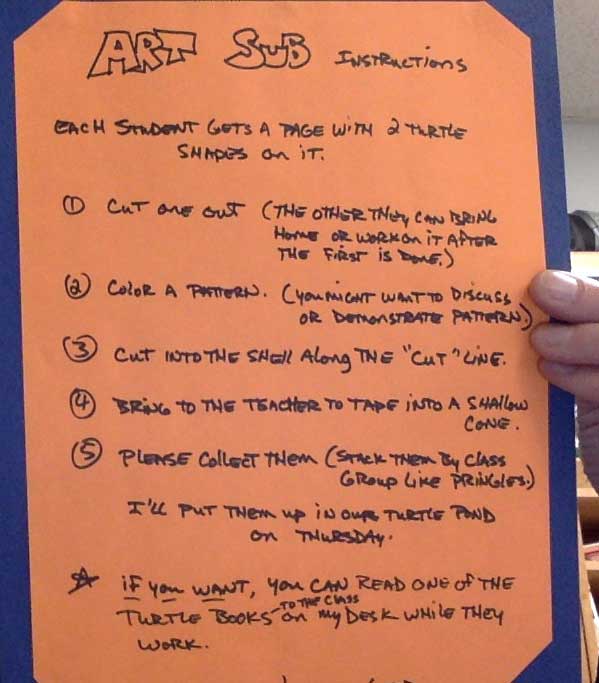 ART SUB INSTRUCTIONS
EACH STUDENT GETS A PAGE WITH 2 TURTLE
SHAPES ON IT.
① CUT ONE OUT (THE OTHER THEY CAN BRING
HOME OR WORK ON IT AFTER
THE FIRST IS DONE.)
② COLOR A PATTERN. (YOU MIGHT WANT TO DISCUSS
OR DEMONSTRATE PATTERN.)
③ CUT INTO THE SHELL ALONG THE "CUT" LINE.
④ BRING TO THE TEACHER TO TAPE INTO A SHALLOW
CONE.
⑤ PLEASE COLLECT THEM (STACK THEM BY CLASS
GROUP LIKE PRINGLES.)
I'LL PUT THEM UP IN OUR TURTLE POND
ON THURSDAY.
☆ IF YOU WANT, YOU CAN READ ONE OF THE
TURTLE BOOKS TO THE CLASS ON MY DESK WHILE THEY
WORK.